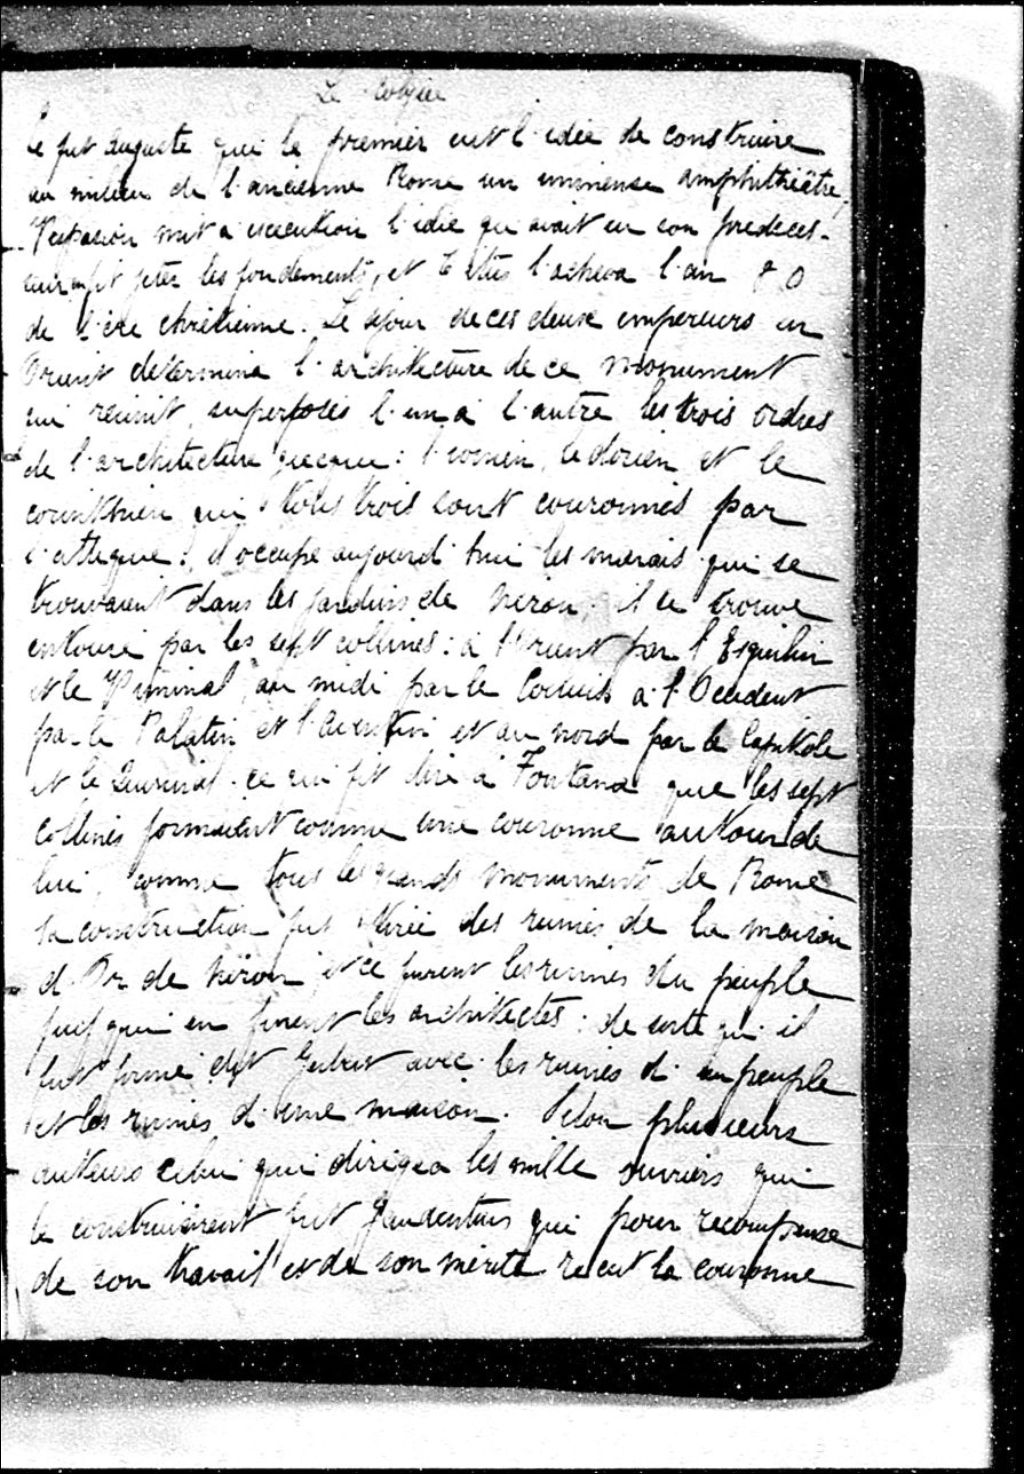 Le Colysée
Ce fut Auguste qui le premier eut l'idée de construire
au milieu de l'ancienne Rome un immense amphithéâtre,
Vespasien mit à execution l'idée qu'avait eu son prédeces-
seur, fit jeter les fondements, et Titus l'acheva l'an 80
de l'ère chrétienne. Le séjour de ces deux empereurs en
Orient détermina l'architecture de ce monument
qui réunit, superposés l'un à l'autre les trois ordres
de l'architecture grecque: l'ionien, le dorien et le
corinthien qui tous trois sont couronnés par
l'attique. Il occupe aujourd'hui les marais qui se
trouvaient dans les jardins de Néron. il se trouve
entouré par les sept collines: à l'Orient par l'Esquilin
et le Viminal, au midi par le Coelius à l'Occident
par le Palatin et l'Aventin et au nord par le Capitole
et le Quirinal. ce qui fit dire à Fontana que les sept
collines formaient comme une couronne autour de
lui. comme tous les grands monuments de Rome
sa construction fut tirée des ruines de la maison
d'Or de Néron et ce furent les ruines du peuple
juif qui en furent les architectes: de sorte qu'il
fut formé dit Gerbet avec les ruines d'un peuple
et les ruines d'une maison. Selon plusieurs
auteurs celui qui dirigea les mille ouvriers qui
le construisirent fut Gaudentius qui pour recompense
de son travail et de son mérite recut la couronne